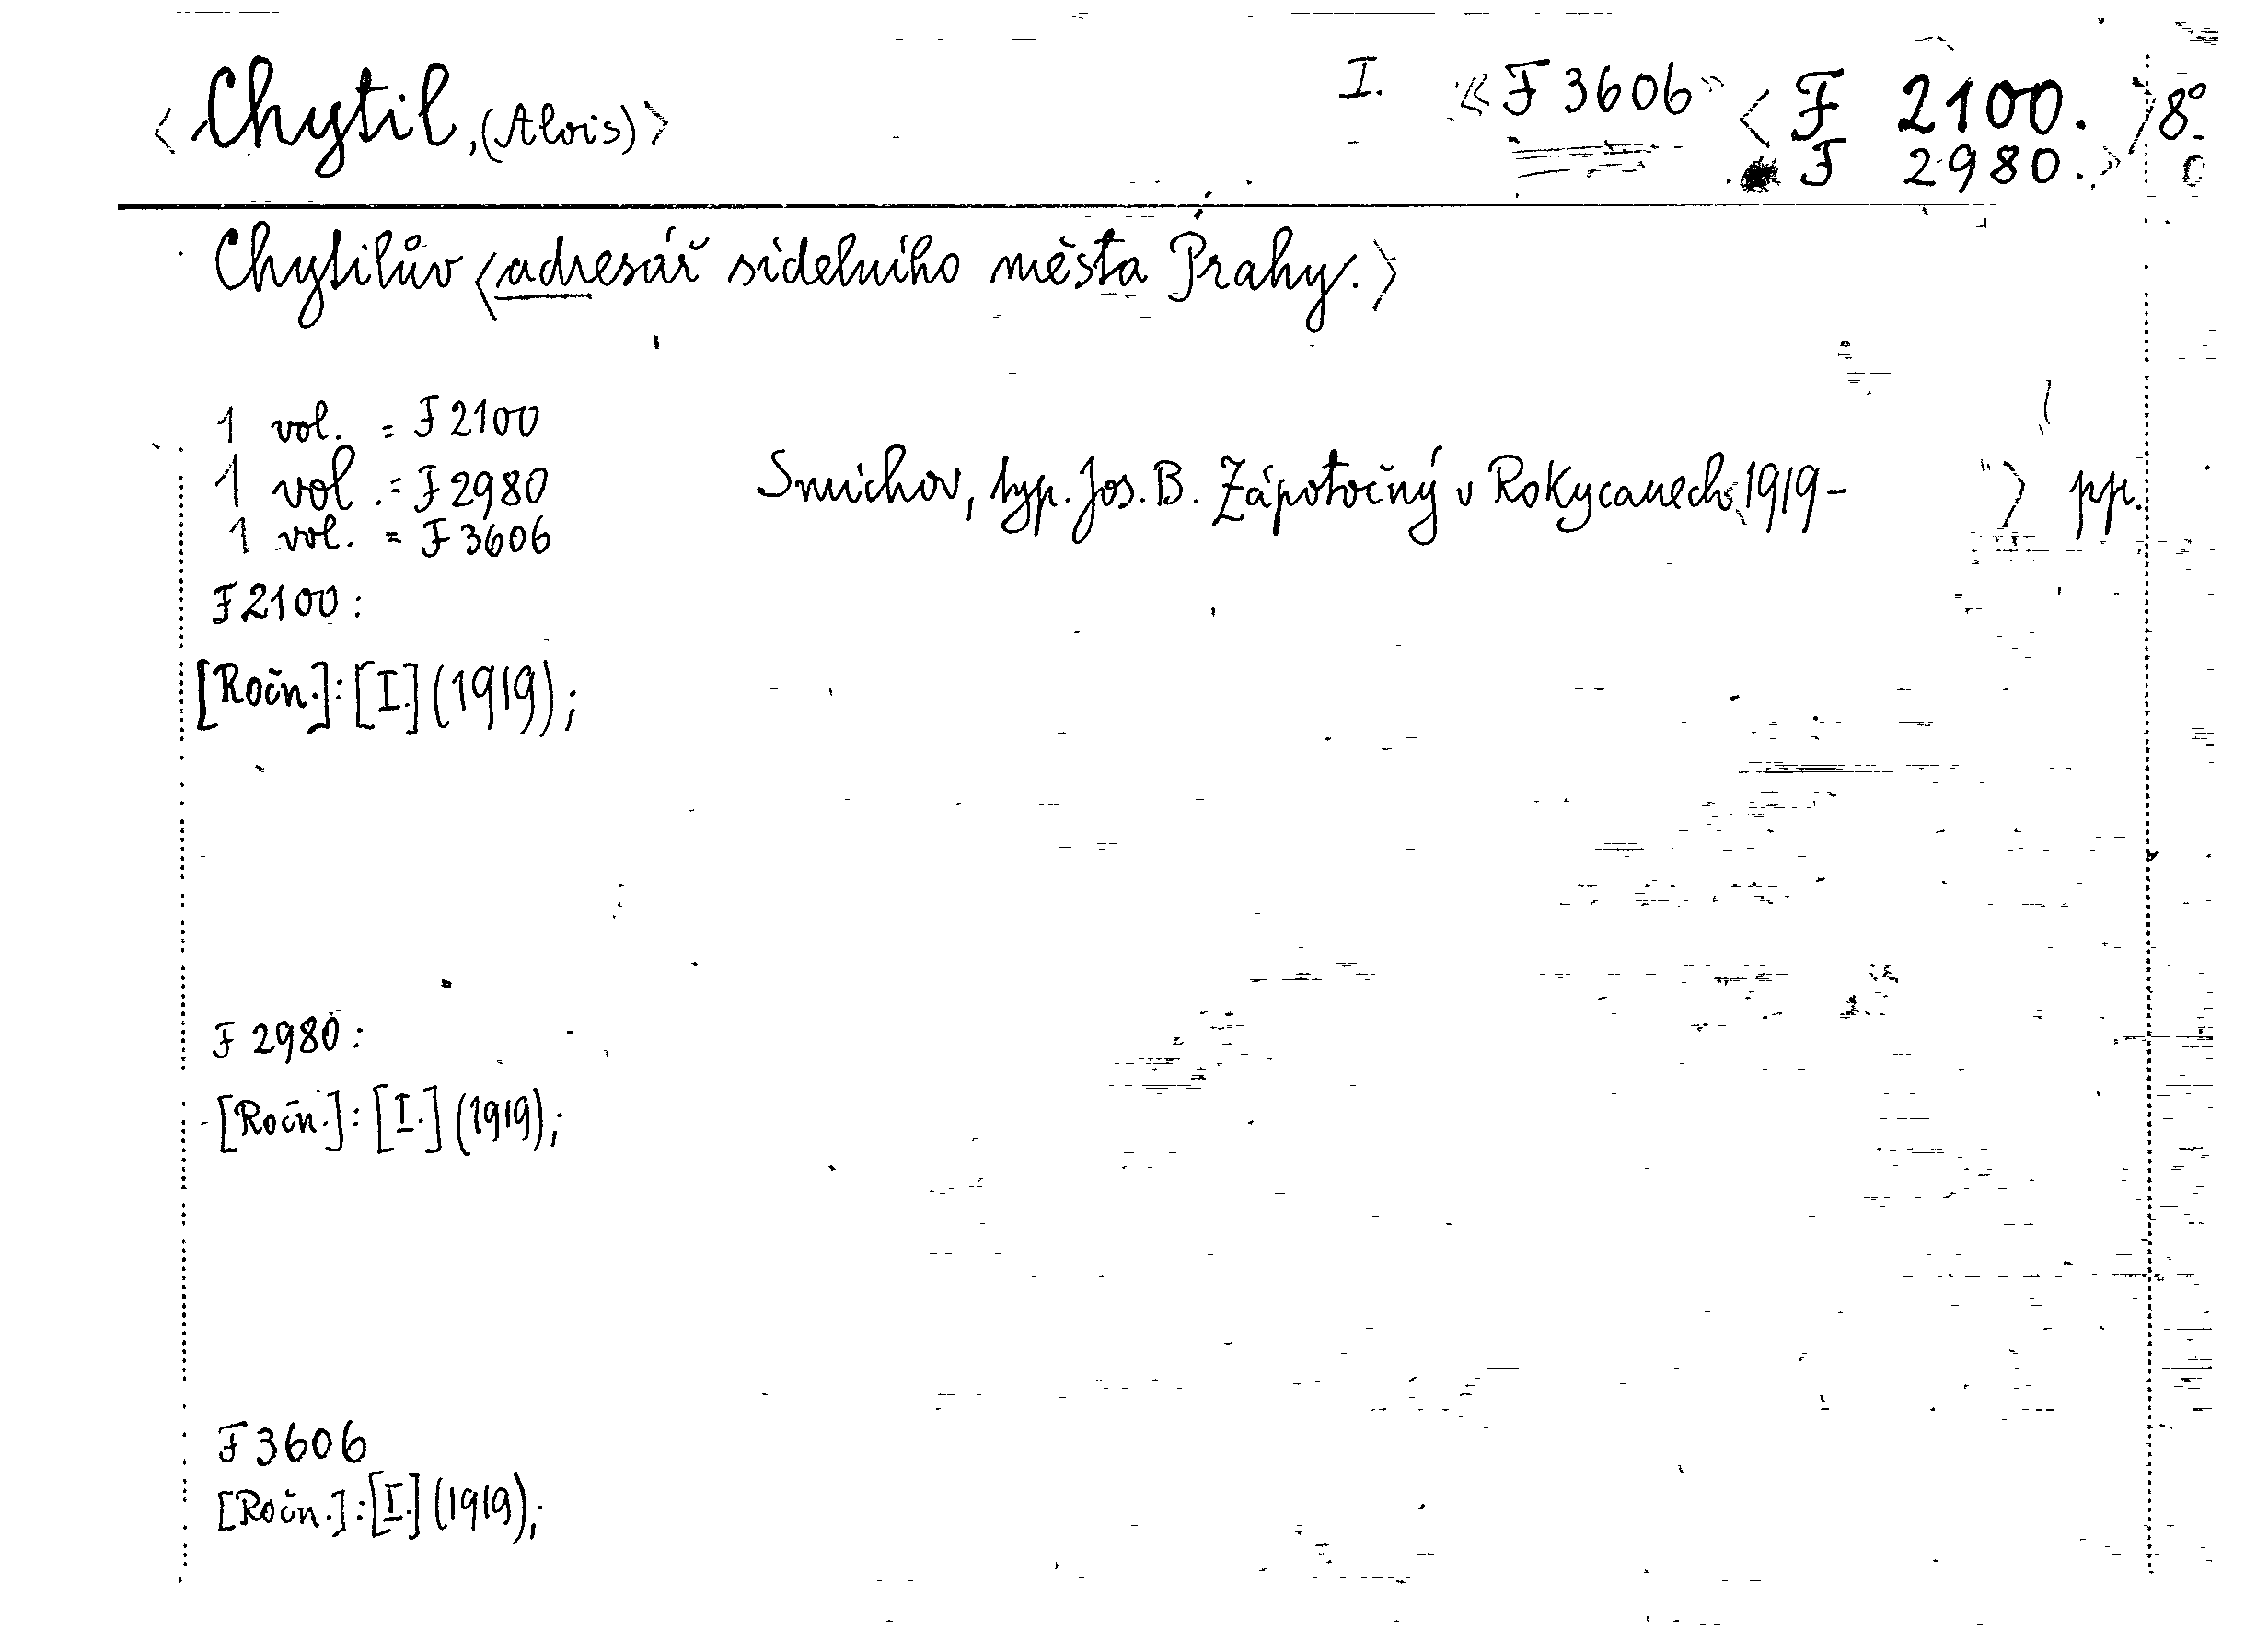 <Chytil, (Alois)> I. «F 3606» <F 2100.> 8°
F 2980.>
Chytilův <adresář sídelního města Prahy.>
1 vol. = F 2100
1 vol. = F 2980
1 vol. = F 3606
Smíchov, typ. Jos. B. Zápotočný v Rokycanech 1919- > pp.
F 2100:
[Ročn.]: [I.] (1919);
F 2980:
[Ročn.]: [I.] (1919);
F 3606
[Ročn.]: [I.] (1919);